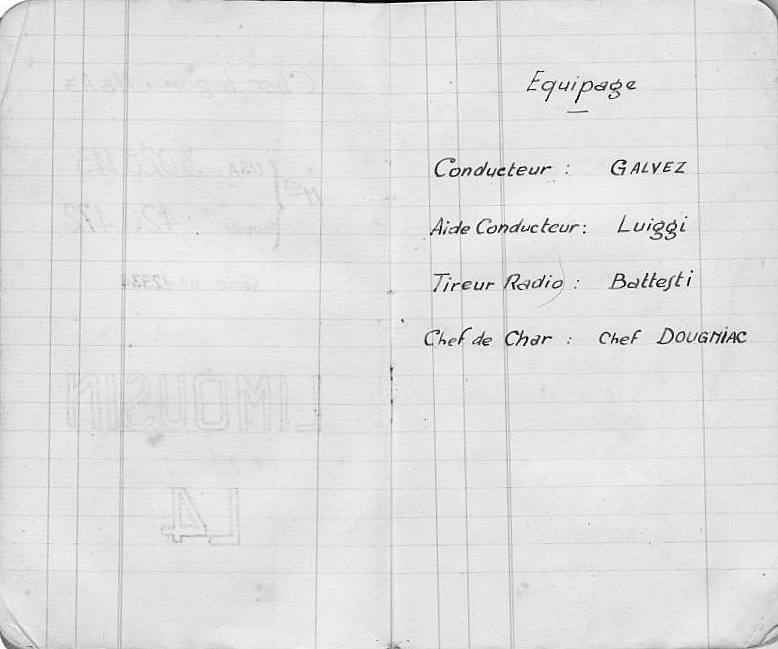 Equipage
Conducteur : GALVEZ
Aide Conducteur : Luiggi
Tireur Radio : Battesti
Chef de Char : Chef DOUGNiAC
LIMOUSIN
L4